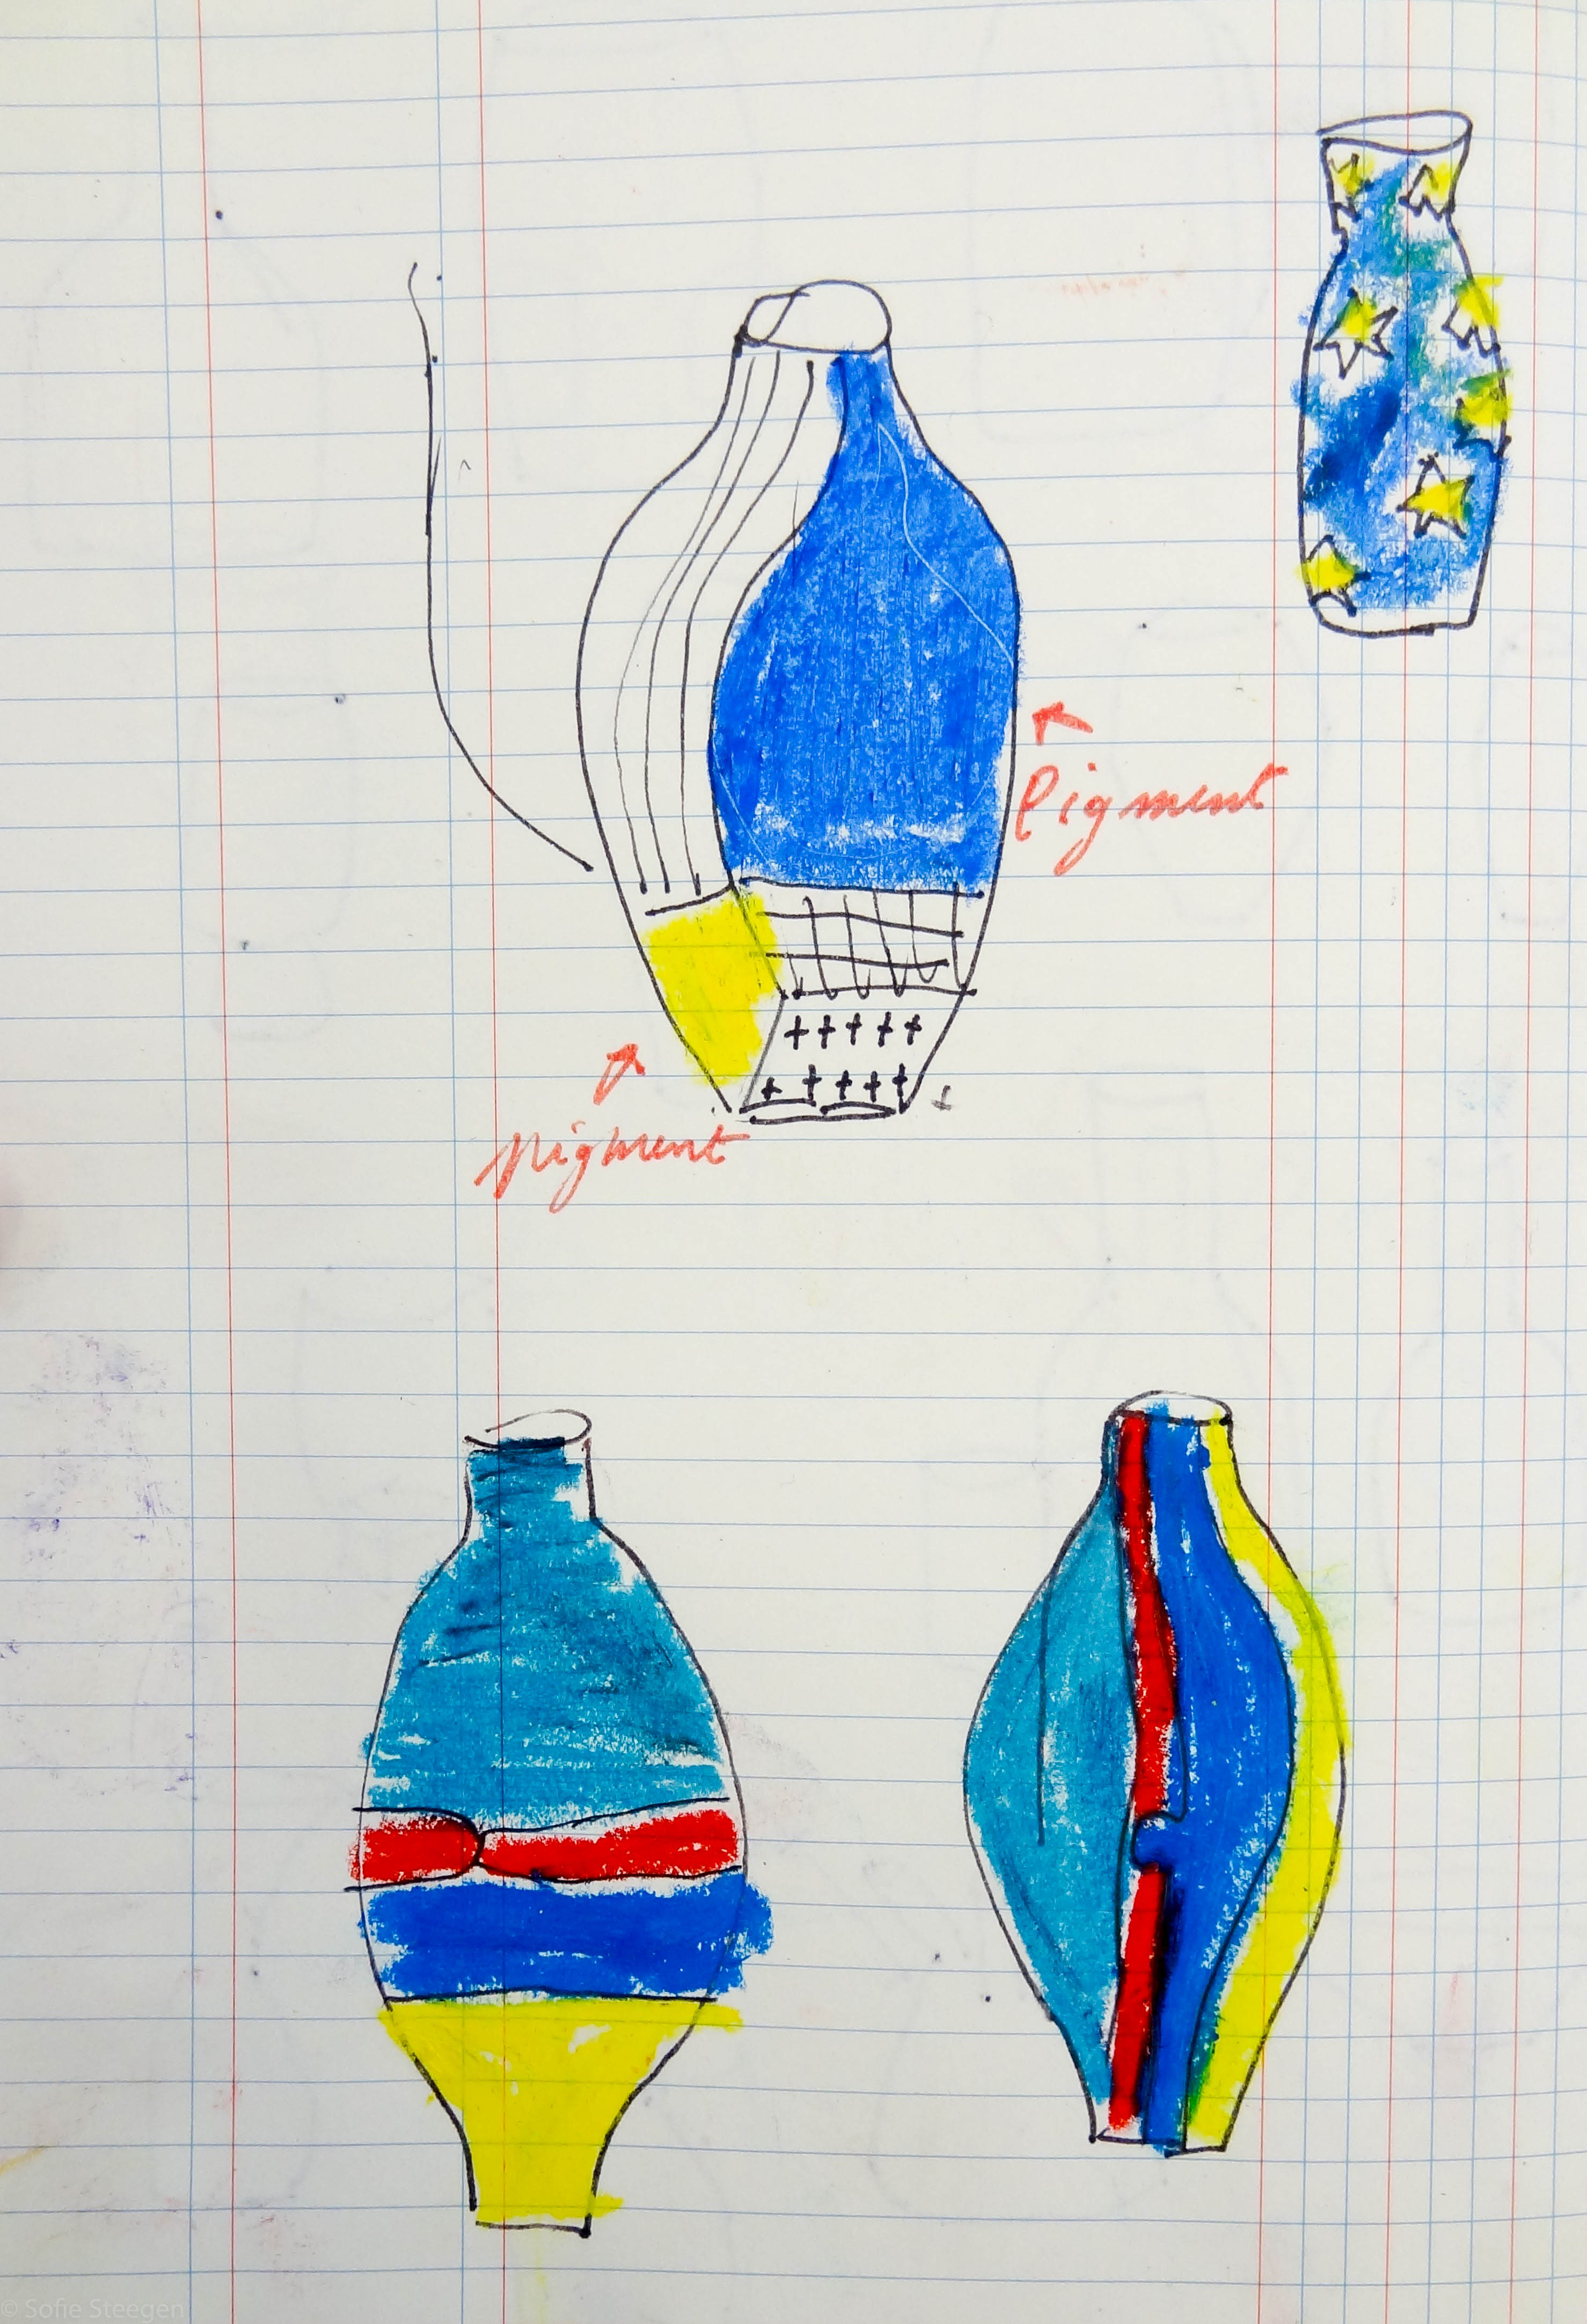 pigment
pigment
© Sofie Steegen